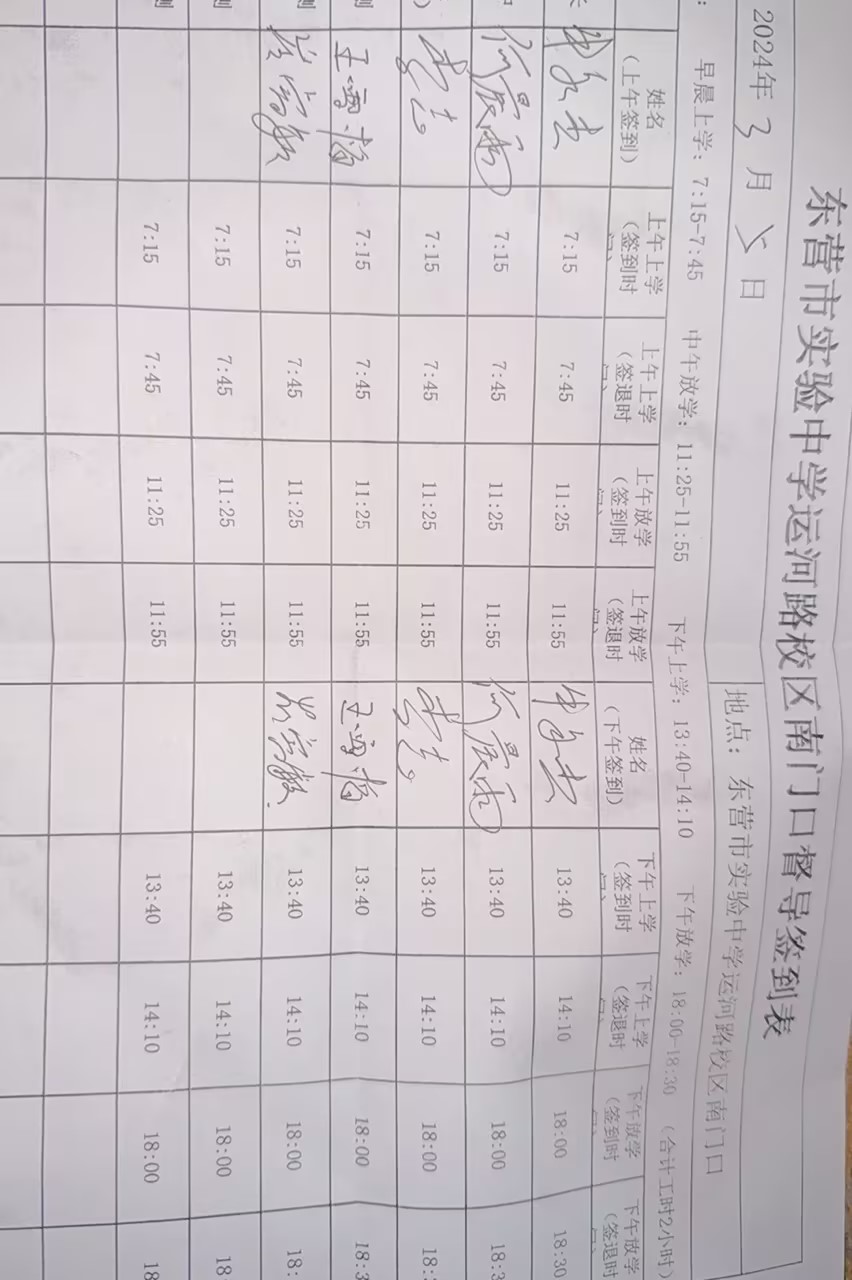 东营市实验中学运河路校区南门口督导签到表
2024年 3 月 5 日 地点：东营市实验中学运河路校区南门口
早晨上学：7:15-7:45 中午放学：11:25-11:55 下午上学：13:40-14:10 下午放学：18:00-18:30 （合计工时2小时）
姓名（上午签到） 上午上学（签到时间） 上午上学（签退时间） 上午放学（签到时间） 上午放学（签退时间） 姓名（下午签到） 下午上学（签到时间） 下午上学（签退时间） 下午放学（签到时间） 下午放学（签退时
7:15 7:45 11:25 11:55 13:40 14:10 18:00 18:30
7:15 7:45 11:25 11:55 13:40 14:10 18:00 18:3
7:15 7:45 11:25 11:55 13:40 14:10 18:00 18:
7:15 7:45 11:25 11:55 13:40 14:10 18:00 18:3
7:15 7:45 11:25 11:55 13:40 14:10 18:00 18:
7:15 7:45 11:25 11:55 13:40 14:10 18:00 18
7:15 7:45 11:25 11:55 13:40 14:10 18:00 18